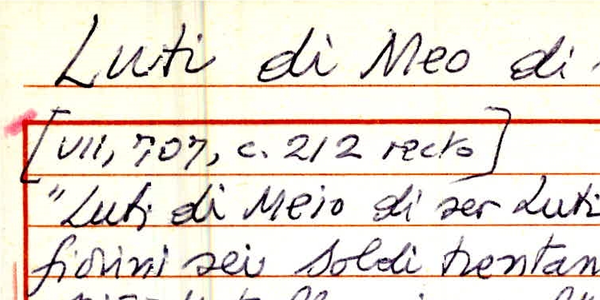 Luti di Meo di
[VII, 707, c. 212 recto]
"Luti di Meio di ser Luti
fiorini sei soldi trentan